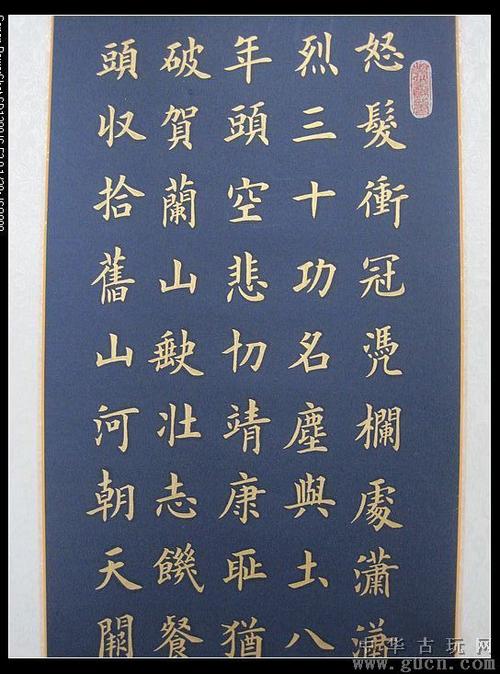 怒髮衝冠凴欄處瀟瀟
烈三十功名塵與土八
年頭空悲切靖康耻猶
破賀蘭山缺壯志饑餐
頭收拾舊山河朝天闕
中华古玩网
www.gucn.com